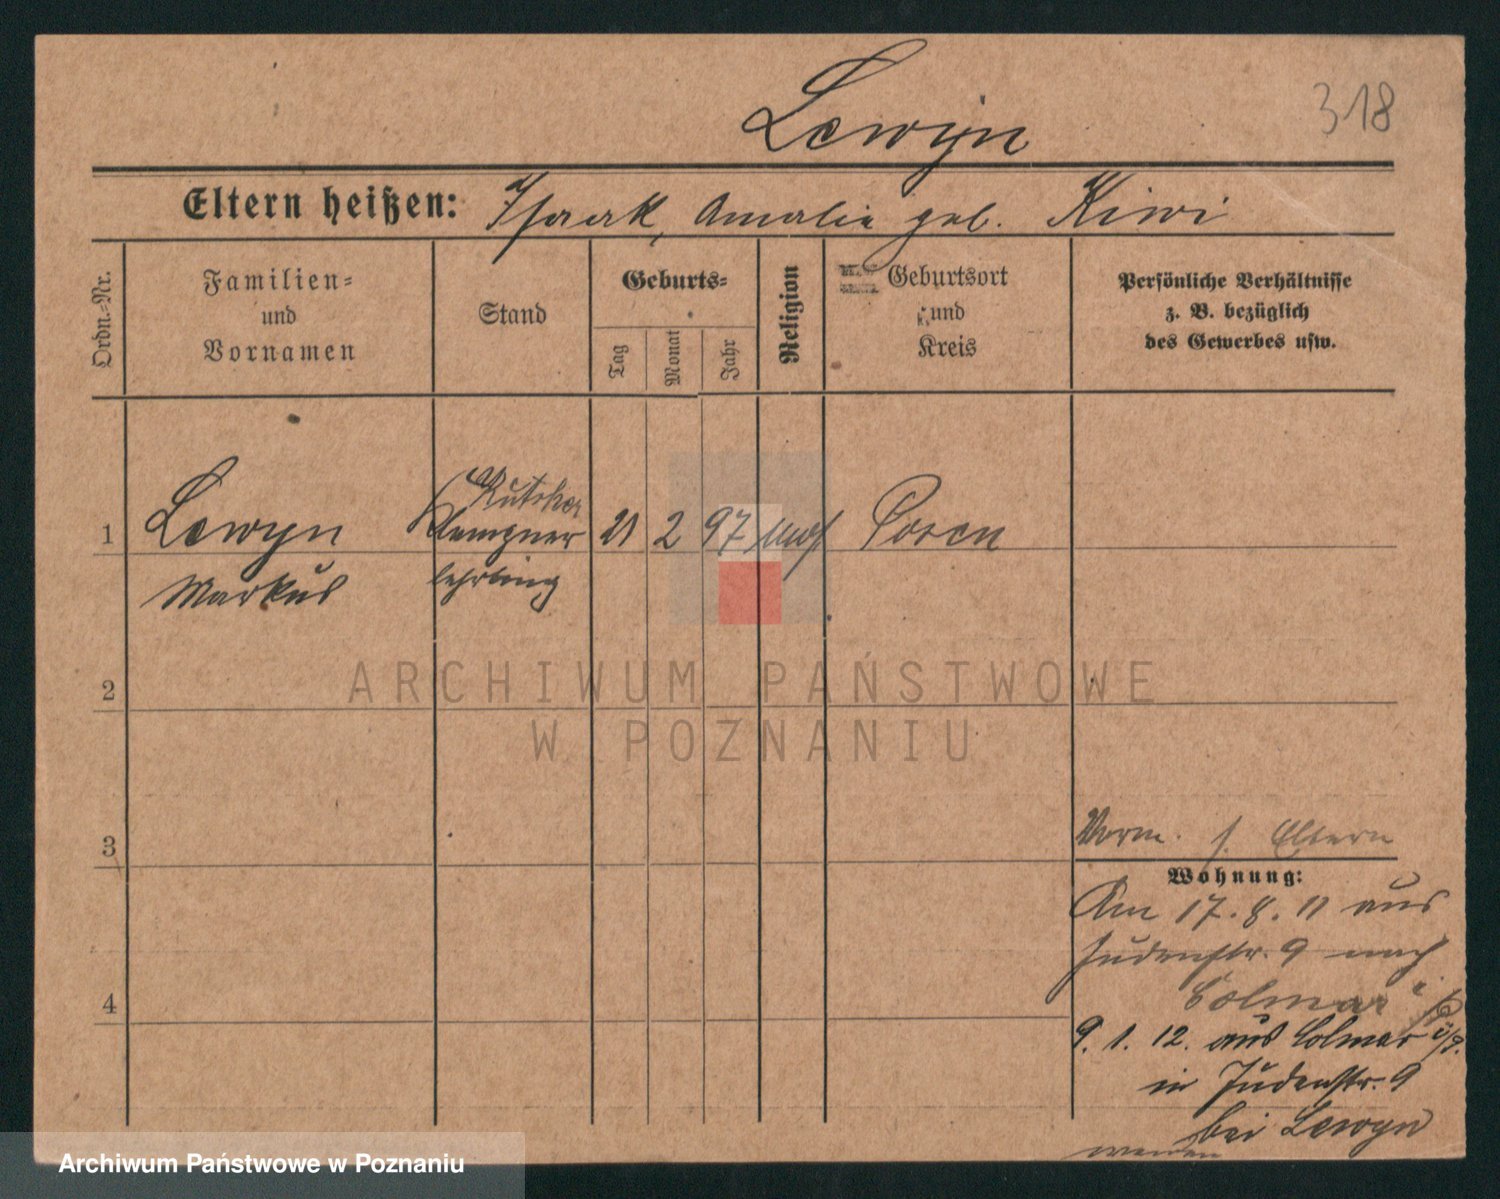 Lewyn
318
Eltern heißen: Isaak, Amalie geb. Kiwi
Ordn.-Nr.
Familien-
und
Vornamen
Stand
Geburts-
Tag
Monat
Jahr
Religion
Geburtsort
und
Kreis
Persönliche Verhältnisse
z. B. bezüglich
des Gewerbes usw.
1
Lewyn
Markus
Klempner
lehrling
21
2
97
mos
Posen
2
3
4
ARCHIWUM PAŃSTWOWE
W POZNANIU
Vorm. s. Eltern
Wohnung:
Am 17. 8. 11 aus
Judenstr. 9 nach
Colmar i/
9. 1. 12. aus Colmar i/P.
in Judenstr. 9
bei Lewyn
Archiwum Państwowe w Poznaniu